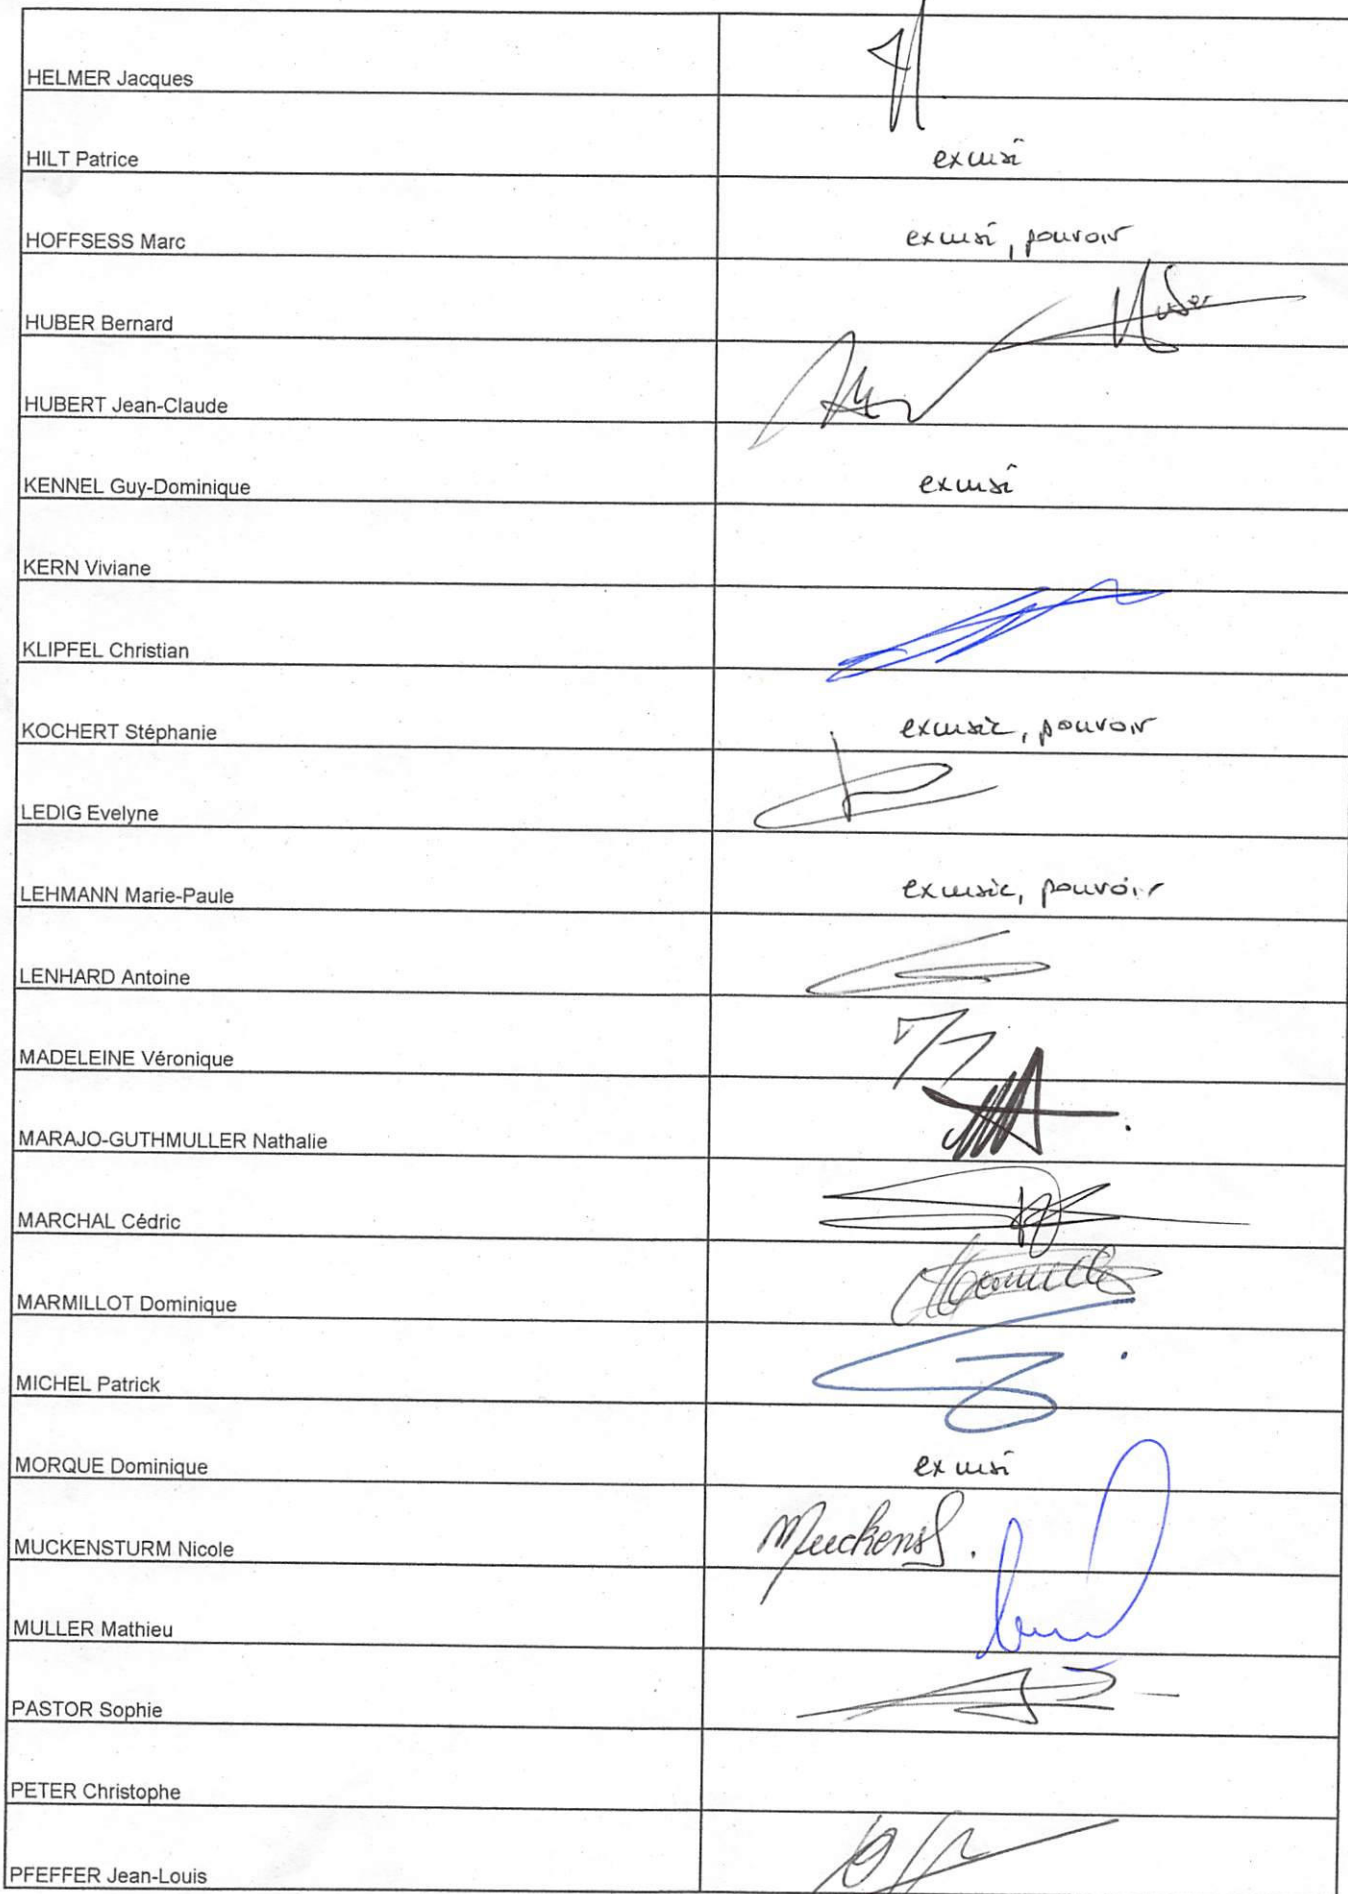 HELMER Jacques
HILT Patrice excusé
HOFFSESS Marc excusé, pouvoir
HUBER Bernard Huber
HUBERT Jean-Claude
KENNEL Guy-Dominique excusé
KERN Viviane
KLIPFEL Christian
KOCHERT Stéphanie excusée, pouvoir
LEDIG Evelyne
LEHMANN Marie-Paule excusée, pouvoir
LENHARD Antoine
MADELEINE Véronique
MARAJO-GUTHMULLER Nathalie
MARCHAL Cédric
MARMILLOT Dominique
MICHEL Patrick
MORQUE Dominique excusé
MUCKENSTURM Nicole Muckens
MULLER Mathieu
PASTOR Sophie
PETER Christophe
PFEFFER Jean-Louis